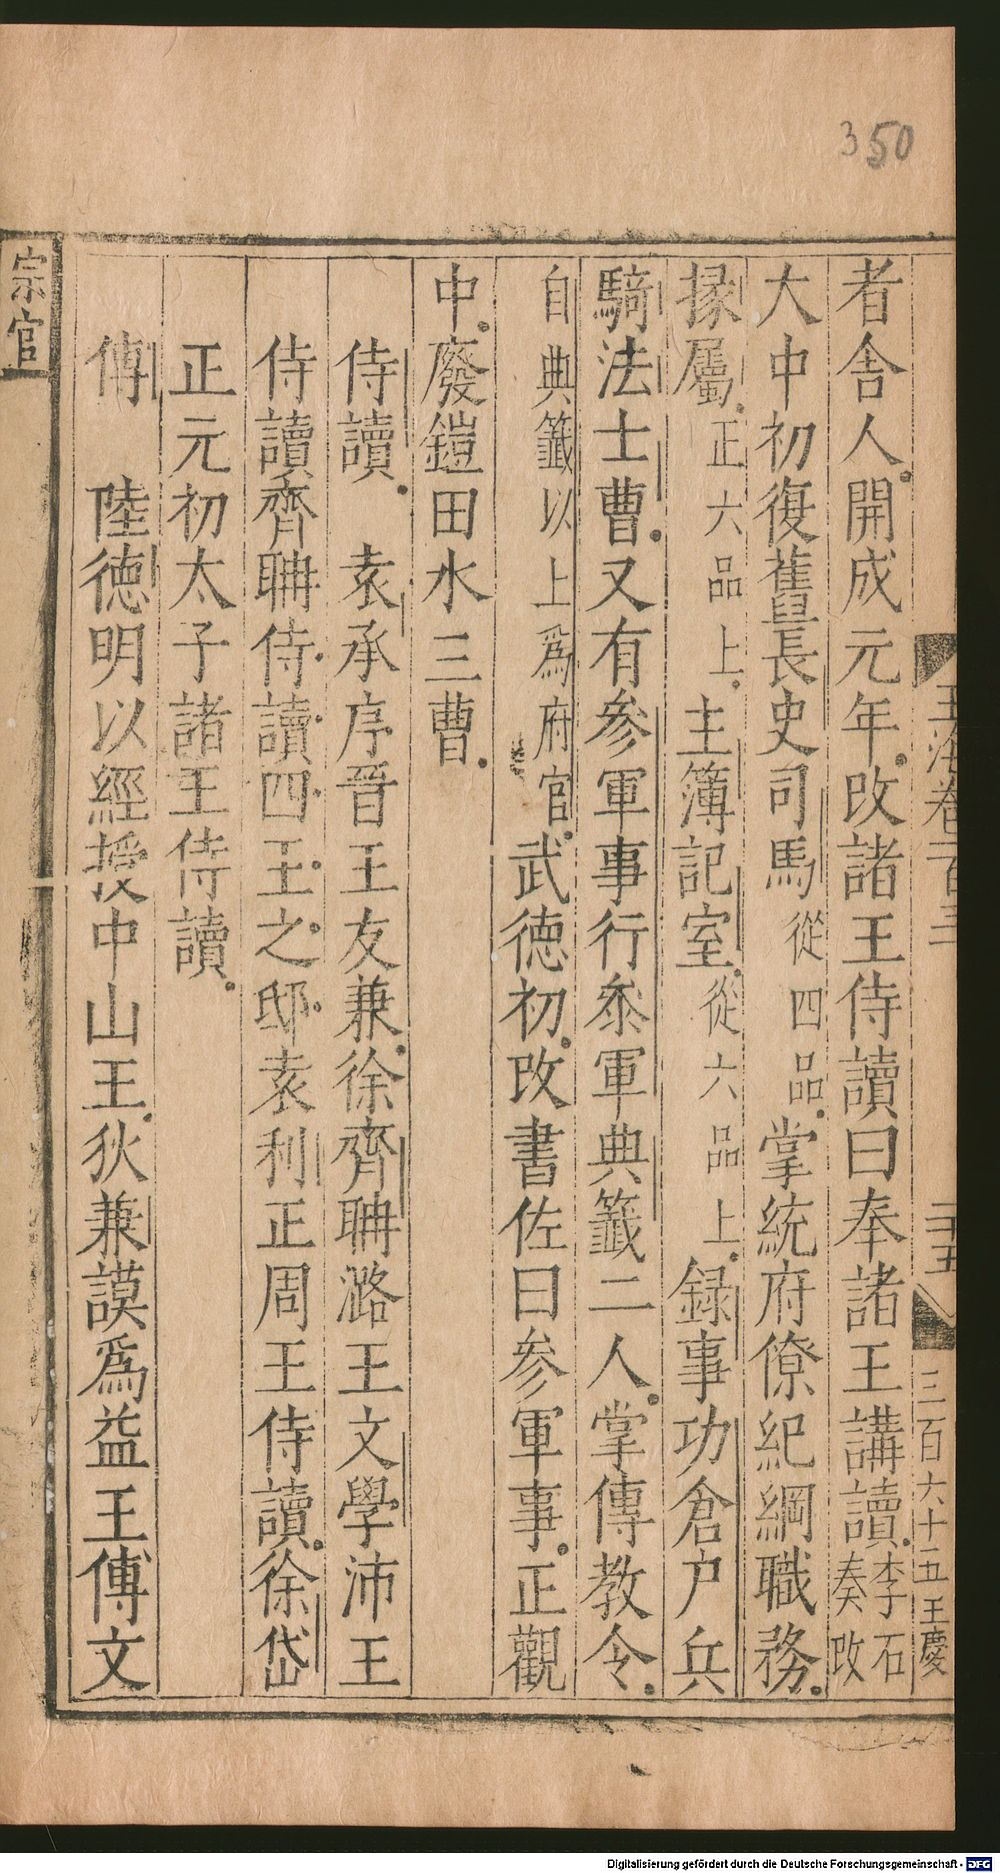 350
玉海卷一百三
二十五
三百六十五王慶
者舍人開成元年改諸王侍讀曰奉諸王講讀李石奏改
大中初復舊長史司馬從四品掌統府僚紀綱職務
掾屬正六品上主簿記室從六品上録事功倉户兵
騎法士曹又有參軍事行叅軍典籤二人掌傳教令
自典籤以上爲府官武德初改書佐曰参軍事正觀
中廢鎧田水三曹
侍讀 袁承序晉王友兼徐齊聃潞王文學沛王
侍讀齊聃侍讀四王之邸袁利正周王侍讀徐岱
正元初太子諸王侍讀
傅 陸德明以經授中山王狄兼謨爲益王傅文
宗官
Digitalisierung gefördert durch die Deutsche Forschungsgemeinschaft - DFG